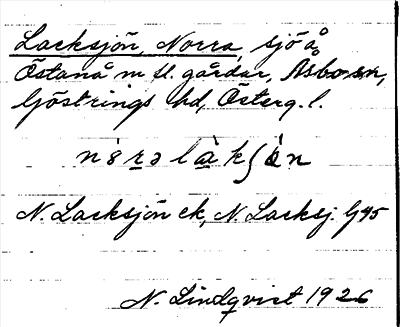 Lacksjön, Norra, sjö å
Östanå m fl. gårdar, Asbo sn,
Göstrings hd, Österg. l.
N. Lacksjön ek, N. Lacksj. G45
N. Lindqvist 1926